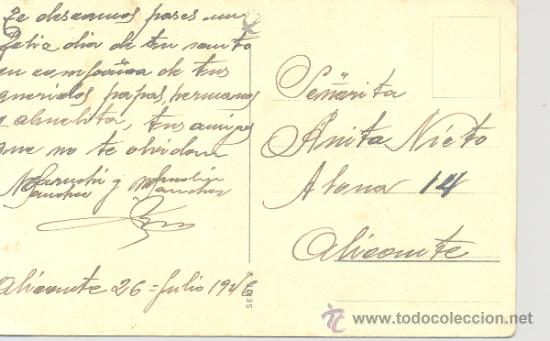 Te deseamos pases un
feliz dia de tu santo
en compañia de tus
queridos papas, hermanos
y abuelita, tus amigas
que no te olvidan
y
Sanchez Sanchez
Alicante 26 = Julio 1946
Señorita
Anita Nieto
Atona 14
Alicante
www.todocoleccion.net